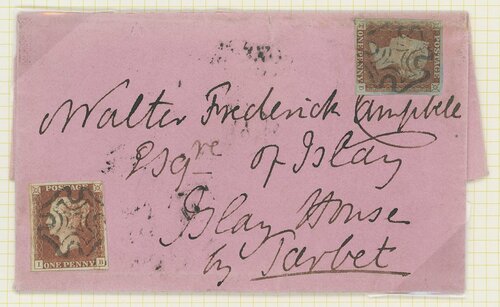 POSTAGE
ONE PENNY
Walter Frederick Campbell
Esqre of Islay
Islay House
by Tarbet
POSTAGE
ONE PENNY